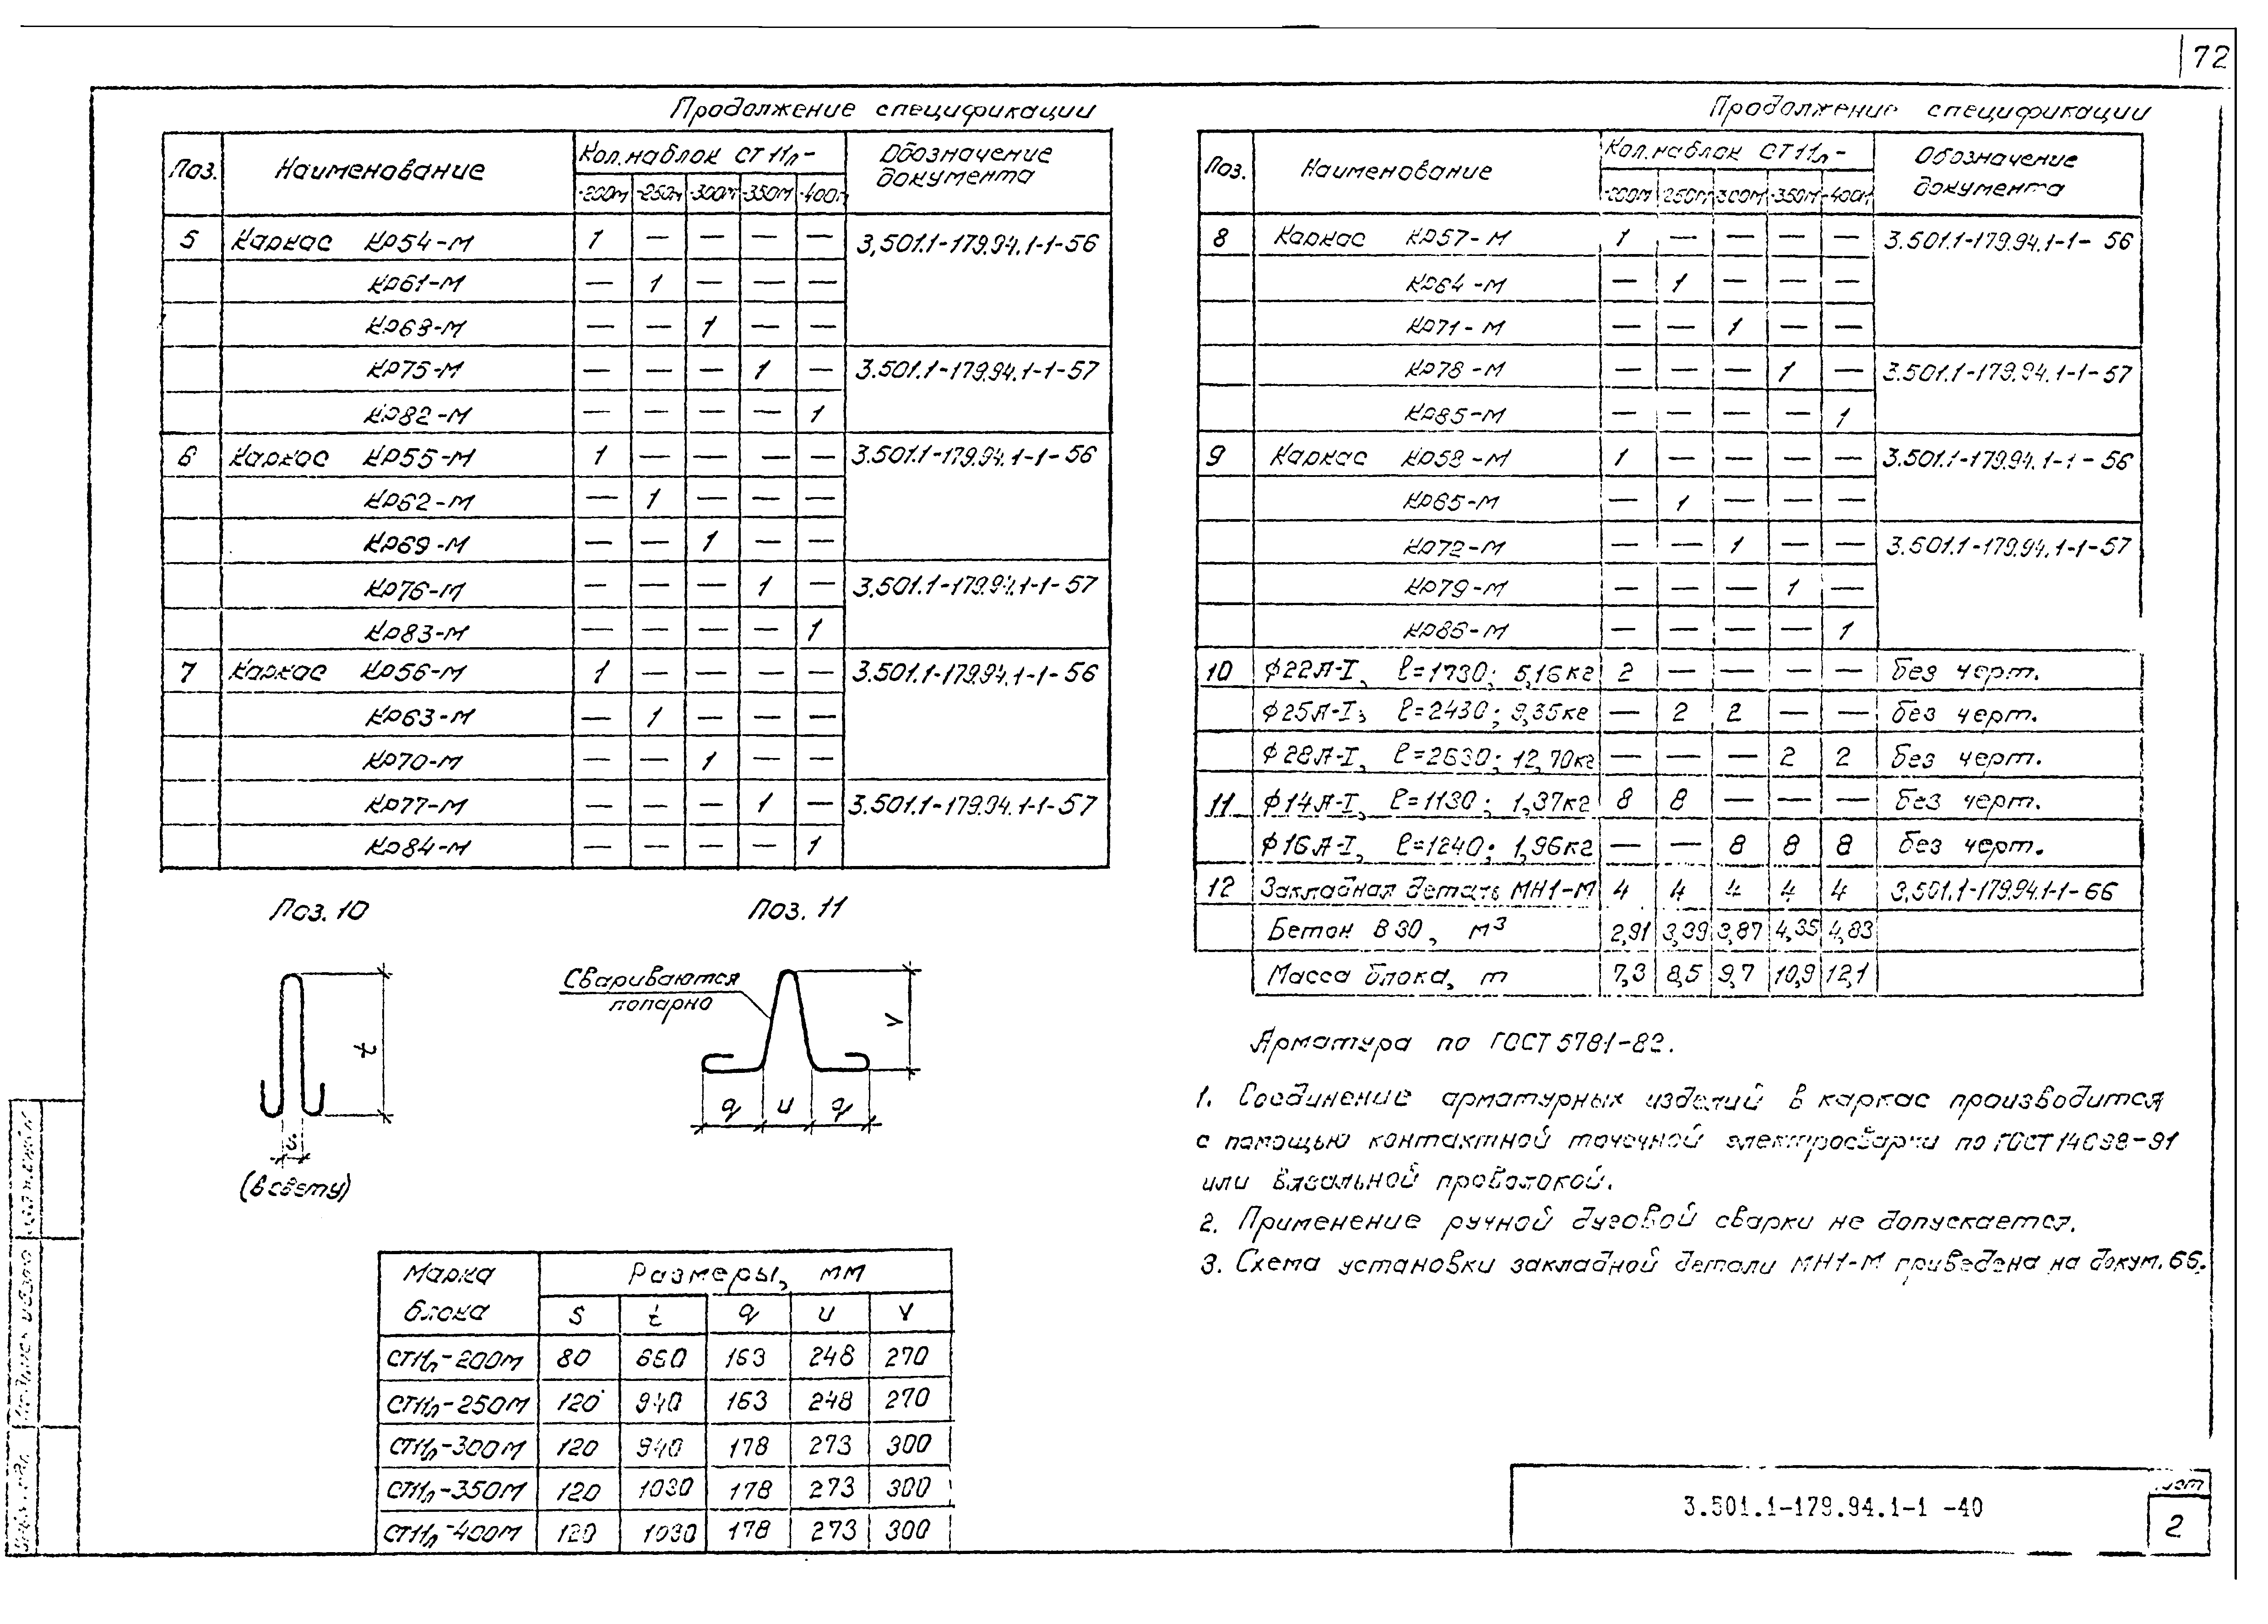 72
Продолжение спецификации
Поз. Наименование Кол. на блок СТ11л- Обозначение документа
-200м -250м -300м -350м -400м
5 Каркас КР54-М 1 — — — — 3.501.1-179.94.1-1-56
КР61-М — 1 — — —
КР68-М — — 1 — —
КР75-М — — — 1 — 3.501.1-179.94.1-1-57
КР82-М — — — — 1
6 Каркас КР55-М 1 — — — — 3.501.1-179.94.1-1-56
КР62-М — 1 — — —
КР69-М — — 1 — —
КР76-М — — — 1 — 3.501.1-179.94.1-1-57
КР83-М — — — — 1
7 Каркас КР56-М 1 — — — — 3.501.1-179.94.1-1-56
КР63-М — 1 — — —
КР70-М — — 1 — —
КР77-М — — — 1 — 3.501.1-179.94.1-1-57
КР84-М — — — — 1
Поз. 10
t
s
(в свету)
Поз. 11
Свариваются
попарно
v
q u q
Марка блока Размеры, мм
s t q u v
СТ11л-200М 80 660 163 248 270
СТ11л-250М 120 940 163 248 270
СТ11л-300М 120 940 178 273 300
СТ11л-350М 120 1030 178 273 300
СТ11л-400М 120 1030 178 273 300
Продолжение спецификации
Поз. Наименование Кол. на блок СТ11л- Обозначение документа
-200м -250м -300м -350м -400м
8 Каркас КР57-М 1 — — — — 3.501.1-179.94.1-1-56
КР64-М — 1 — — —
КР71-М — — 1 — —
КР78-М — — — 1 — 3.501.1-179.94.1-1-57
КР85-М — — — — 1
9 Каркас КР58-М 1 — — — — 3.501.1-179.94.1-1-56
КР65-М — 1 — — —
КР72-М — — 1 — — 3.501.1-179.94.1-1-57
КР79-М — — — 1 —
КР86-М — — — — 1
10 ϕ22А-I, ℓ=1730; 5,16кг 2 — — — — без черт.
ϕ25А-I, ℓ=2430; 9,35кг — 2 2 — — без черт.
ϕ28А-I, ℓ=2630; 12,70кг — — — 2 2 без черт.
11 ϕ14А-I, ℓ=1130; 1,37кг 8 8 — — — без черт.
ϕ16А-I, ℓ=1240; 1,96кг — — 8 8 8 без черт.
12 Закладная деталь МН1-М 4 4 4 4 4 3.501.1-179.94.1-1-66
Бетон В30, м³ 2,91 3,39 3,87 4,35 4,83
Масса блока, т 7,3 8,5 9,7 10,9 12,1
Арматура по ГОСТ 5781-82.
1. Соединение арматурных изделий в каркас производится
с помощью контактной точечной электросварки по ГОСТ 14098-91
или вязальной проволокой.
2. Применение ручной дуговой сварки не допускается.
3. Схема установки закладной детали МН1-М приведена на докум. 66.
3.501.1-179.94.1-1 -40
Лист
2